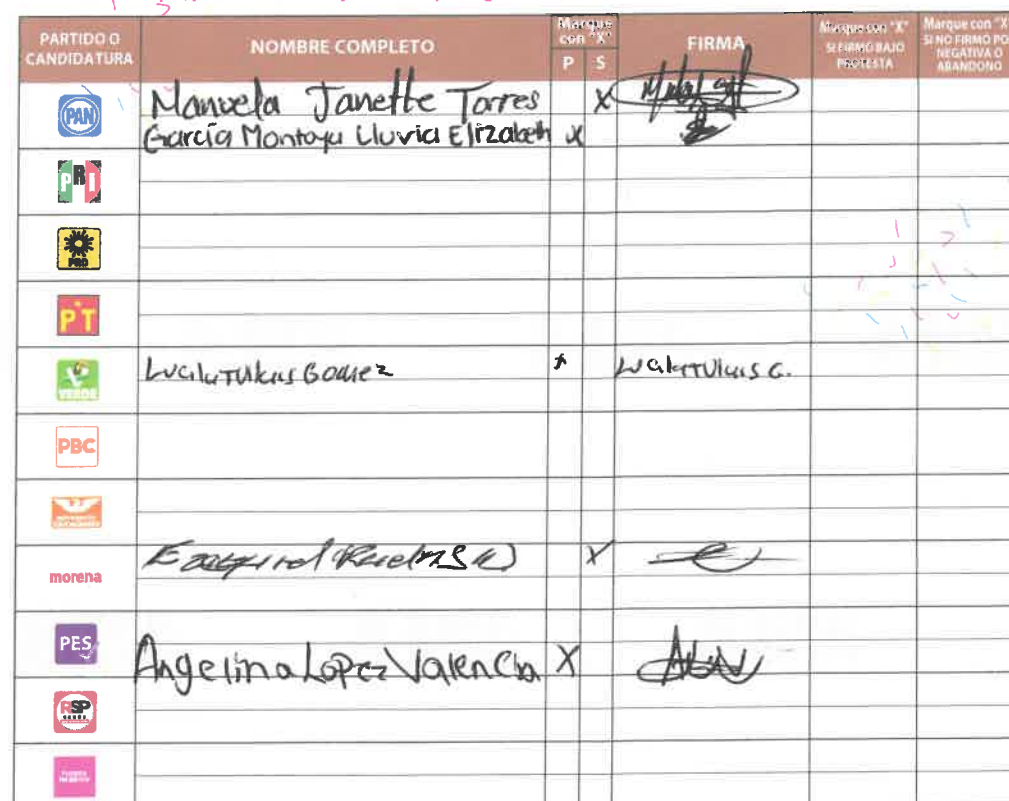 PARTIDO O CANDIDATURA
NOMBRE COMPLETO
Marque con "X"
P S
FIRMA
Marque con "X" SI FIRMÓ BAJO PROTESTA
Marque con "X" SI NO FIRMÓ POR NEGATIVA O ABANDONO
PAN Manuela Janette Torres X
García Montoya Lluvia Elizabeth X
PRI
PRD
PT
VERDE Gomez x G.
PBC
MOVIMIENTO CIUDADANO
morena X
PES Angelina Lopez Valencia X
RSP